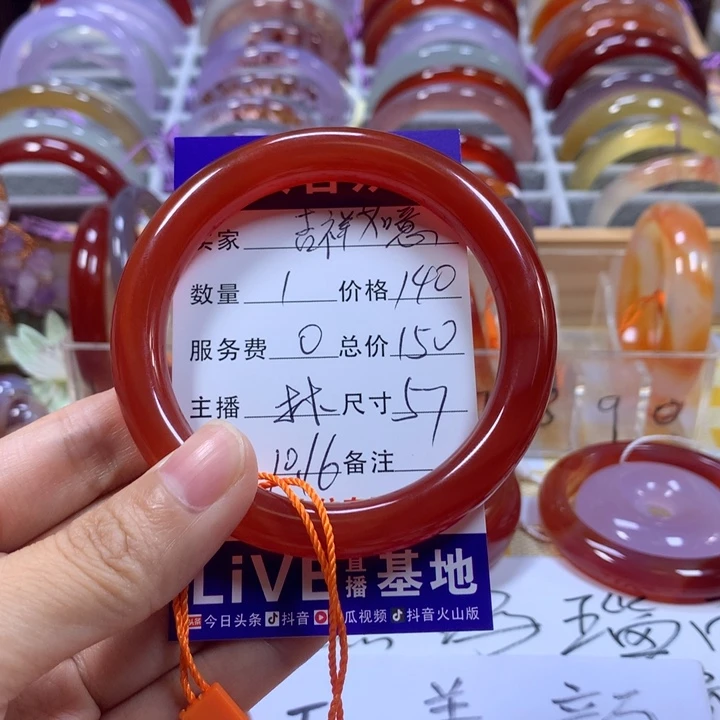 家 吉祥如意
数量 1 价格 140
服务费 0 总价 150
主播 林 尺寸 57
10.16 备注
LiVE 直播 基地
今日头条 抖音 瓜视频 抖音火山版
8 9 0